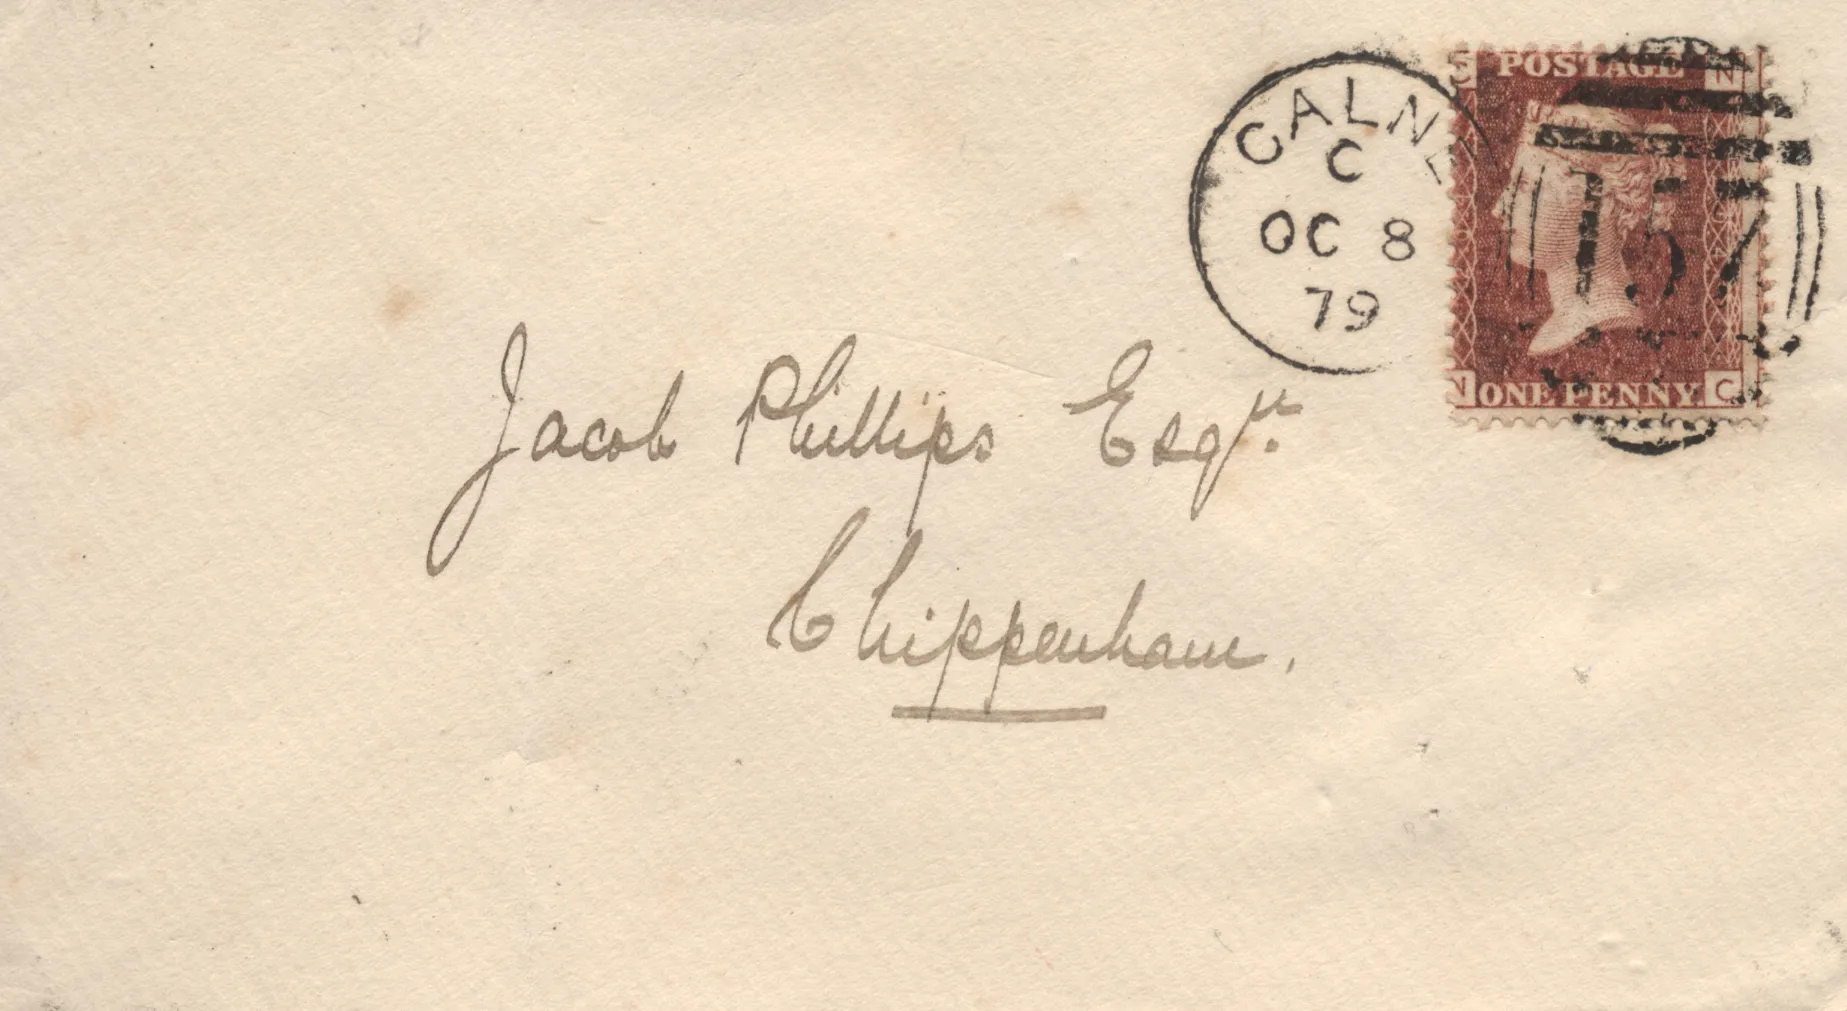 CALNE
C
OC 8
79
POSTAGE N
157
N ONE PENNY C
Jacob Phillips Esqr.
Chippenham.